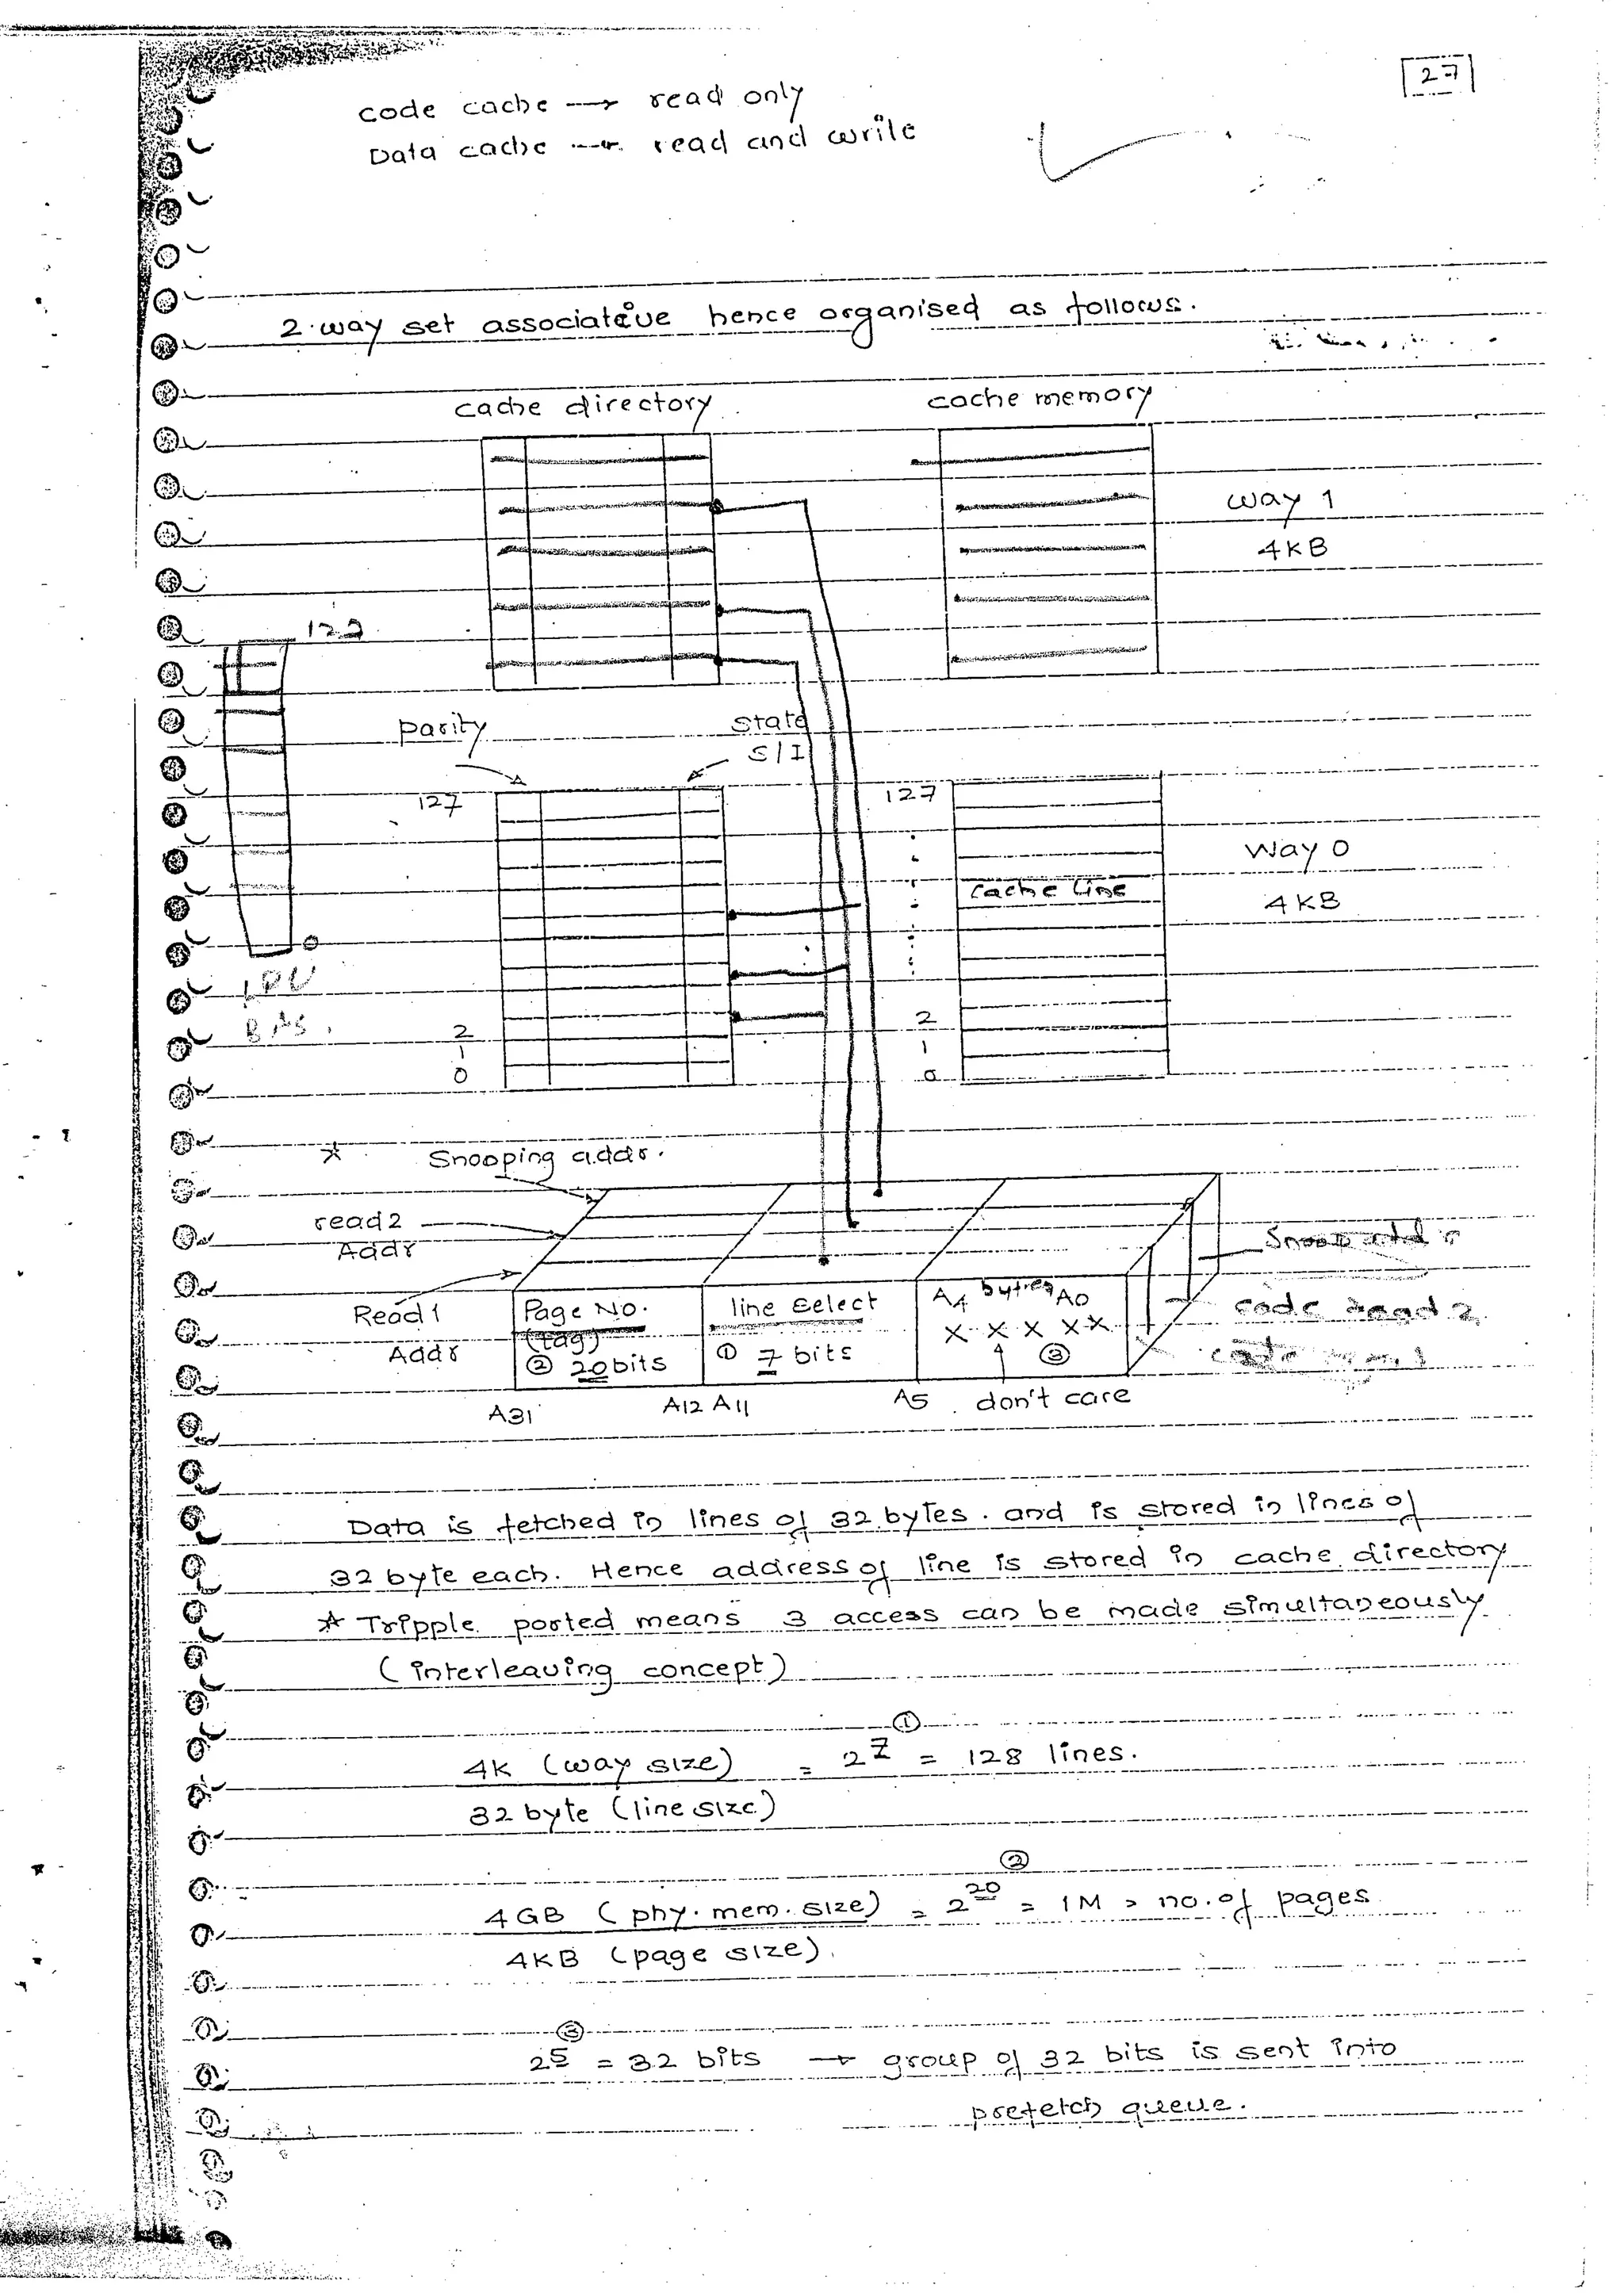 27
code cache → read only
Data cache → read and write
2-way set associative hence organised as follows.
cache directory
cache memory
way 1
4KB
parity
state
S/I
127
127
Way 0
cache line
4KB
0
LRU
Bits.
2
1
0
2
1
0
* Snooping addr.
read 2
Addr
Read 1
Addr
Page No.
(tag)
② 20 bits
line select
① 7 bits
A4 bytes A0
X X X X X
③
Snoop
code read 2
A31
A12 A11
A5
don't care
Data is fetched in lines of 32 bytes. and is stored in lines of
32 byte each. Hence address of line is stored in cache directory
* Tripple ported means 3 access can be made simultaneously
(interleaving concept)
①
4K (way size) = 2^7 = 128 lines.
32 byte (line size)
②
4GB (phy. mem. size) = 2^20 = 1M > no. of pages
4KB (page size).
③
2^5 = 32 bits → group of 32 bits is sent into
prefetch queue.